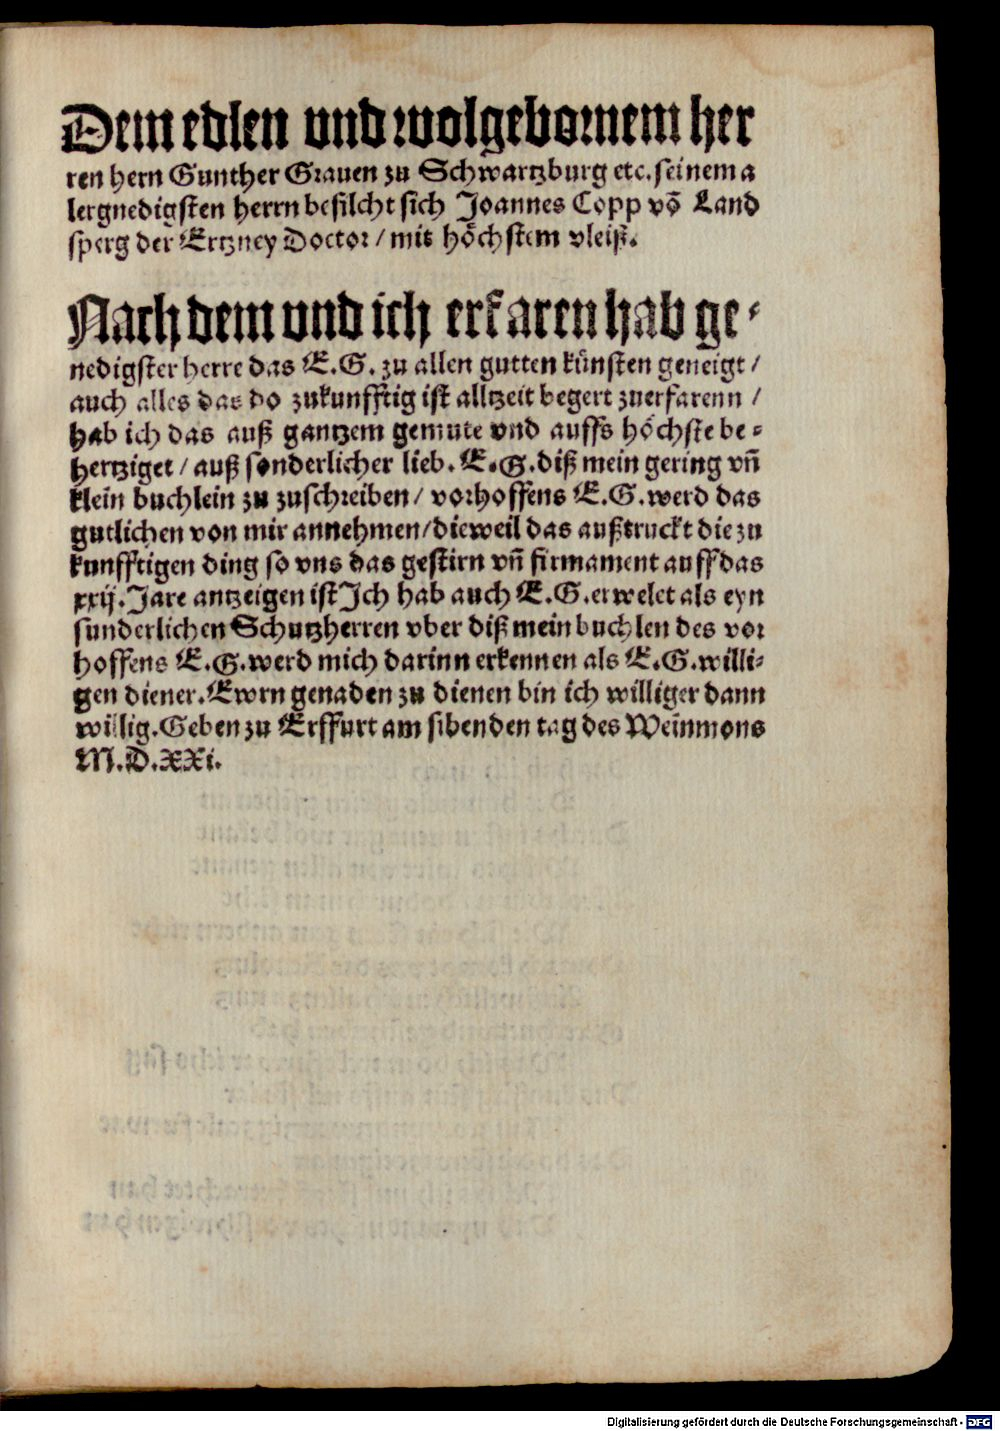 Dem edlen vnd wolgebornem her
ren hern Gunther Grauen zu Schwartzburg etc. seinem a
lergnedigsten herrn befilcht sich Joannes Copp võ Land
sperg der Ertzney Doctor / mit höchstem vleiß.
Nach dem vnd ich erfaren hab ge-
nedigster herre das E.G. zu allen gutten künsten geneigt /
auch alles das do zukunfftig ist alltzeit begert zuerfarenn /
hab ich das auß gantzem gemute vnd auffs höchste be-
hertziget / auß sonderlicher lieb. E.G. diß mein gering vñ
klein buchlein zu zuschreiben / vorhoffens E.G. werd das
gutlichen von mir annehmen / dieweil das außtruckt die zu
kunfftigen ding so vns das gestirn vñ firmament auff das
xxij. Jare antzeigen ist Ich hab auch E.G. erwelet als eyn
sunderlichen Schutzherren vber diß mein buchlen des vor
hoffens E.G. werd mich darinn erkennen als E.G. willi-
gen diener. Ewrn genaden zu dienen bin ich williger dann
willig. Geben zu Erffurt am sibenden tag des Weinmons
M.D.XXi.
Digitalisierung gefördert durch die Deutsche Forschungsgemeinschaft - DFG